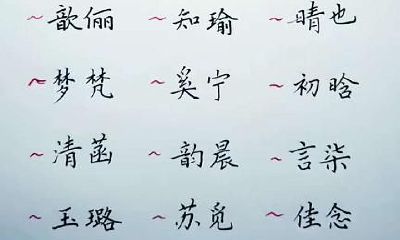 ~歆俪 ~知瑜 ~晴也
~梦梵 ~奚宁 ~初晗
~清菡 ~韵晨 ~言柒
~玉璐 ~苏觅 ~佳念